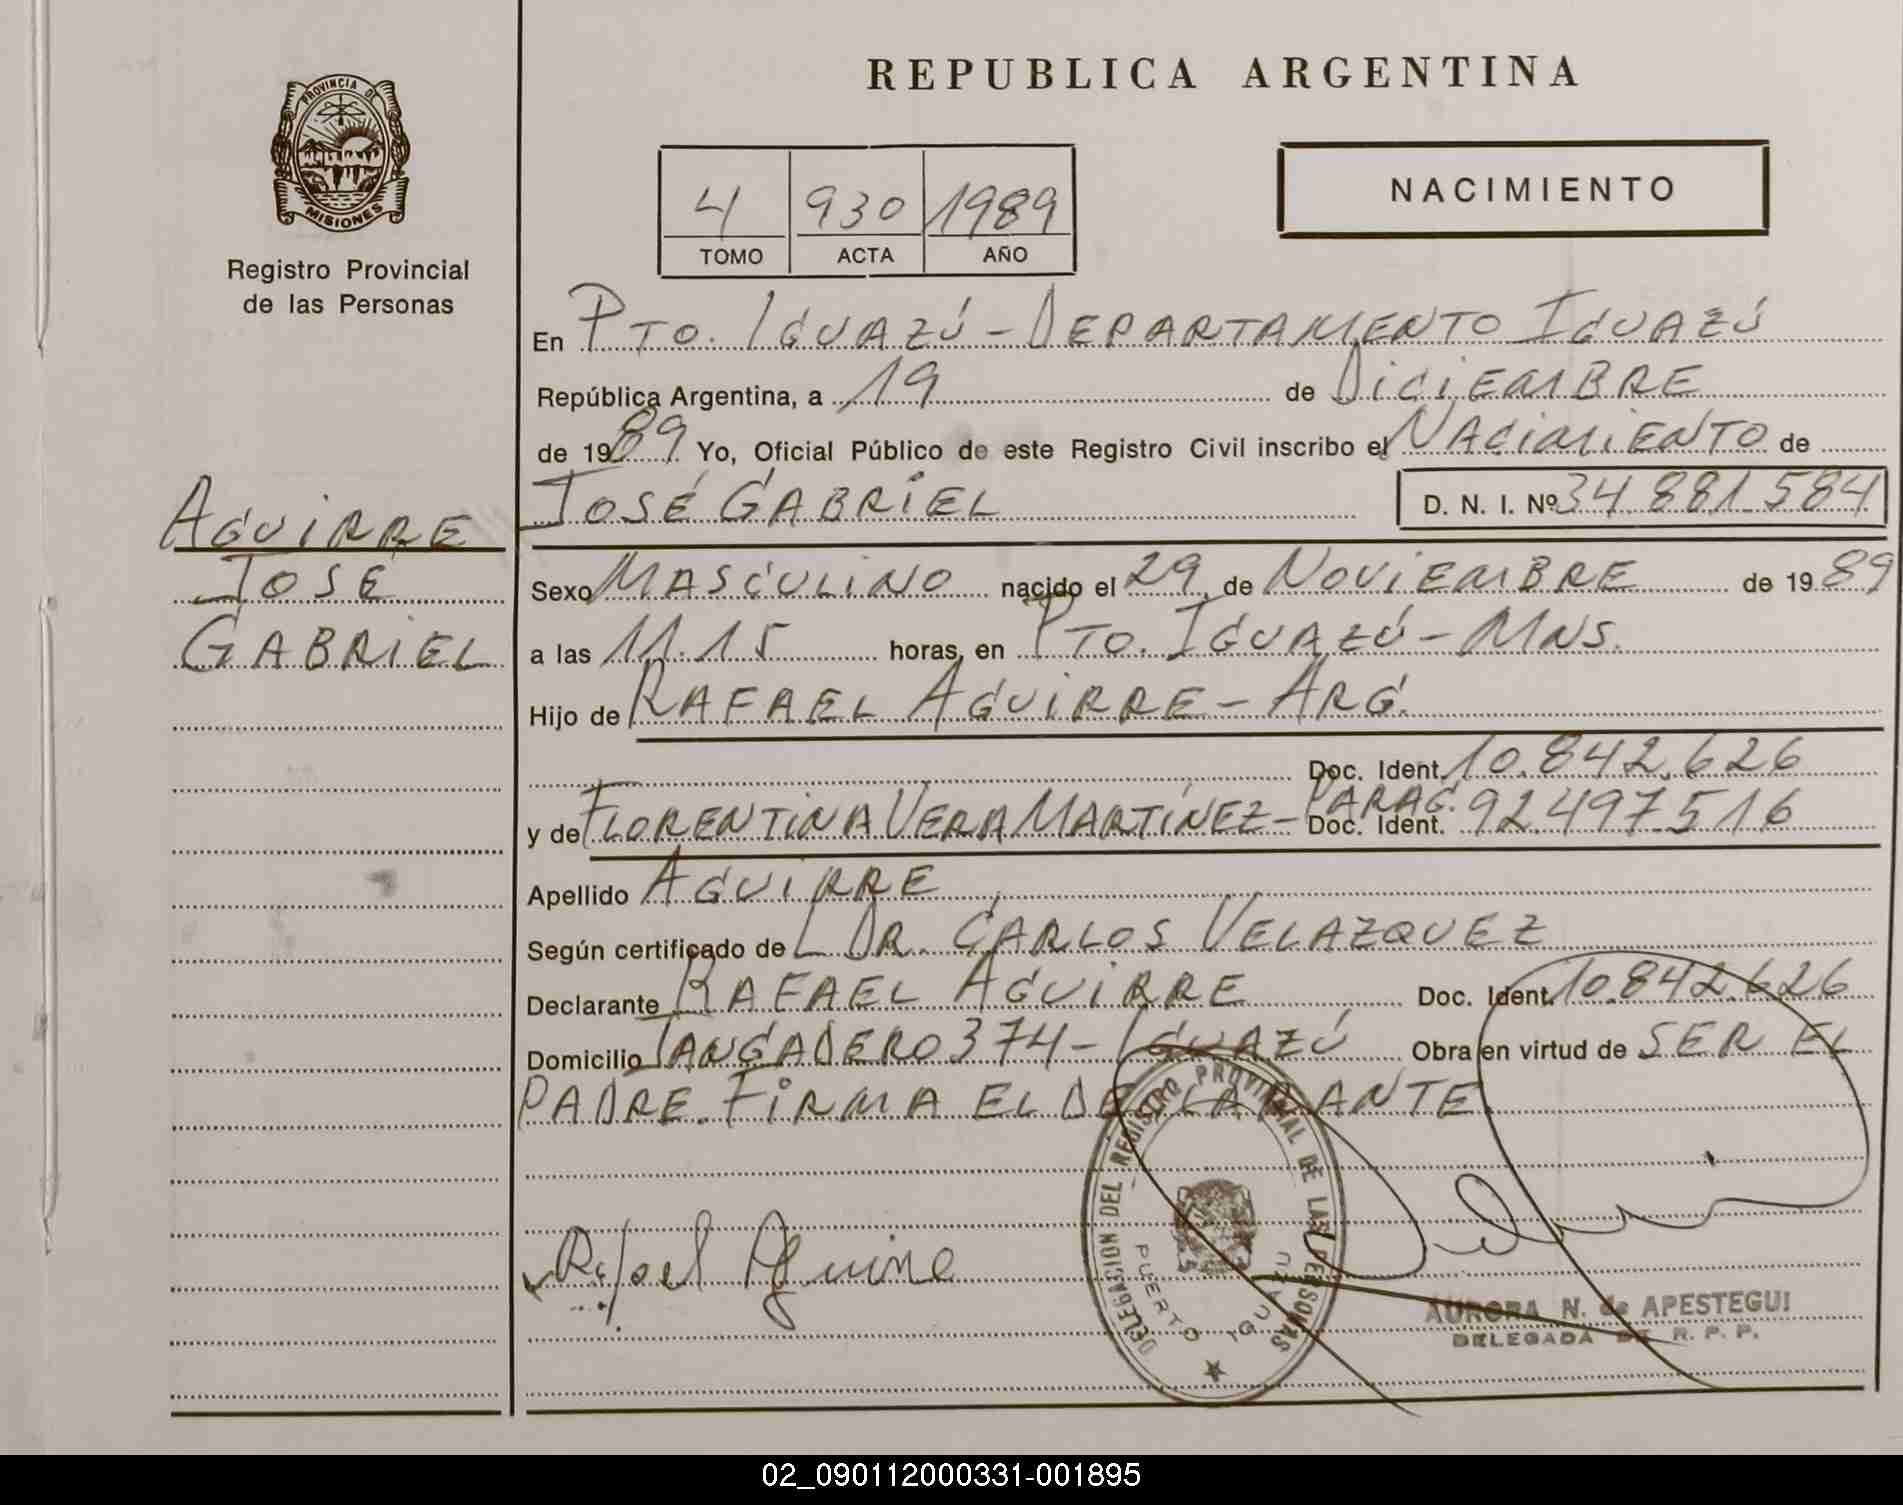 PROVINCIA DE
MISIONES
Registro Provincial
de las Personas
AGUIRRE
JOSÉ
GABRIEL
REPUBLICA ARGENTINA
4 930 1989
TOMO ACTA AÑO
NACIMIENTO
En PTO. IGUAZÚ - DEPARTAMENTO IGUAZÚ
República Argentina, a 19 de DICIEMBRE
de 1989 Yo, Oficial Público de este Registro Civil inscribo el NACIMIENTO de
JOSÉ GABRIEL D. N. I. Nº 34.881.584
Sexo MASCULINO nacido el 29 de NOVIEMBRE de 1989
a las 11.15 horas, en PTO. IGUAZÚ - MNS.
Hijo de RAFAEL AGUIRRE - ARG.
Doc. Ident. 10.842.626
y de FLORENTINA VERA MARTÍNEZ - PARAG. Doc. Ident. 92.497.516
Apellido AGUIRRE
Según certificado de L DR. CARLOS VELAZQUEZ
Declarante RAFAEL AGUIRRE Doc. Ident. 10.842.626
Domicilio TANGADERO 374 - IGUAZÚ Obra en virtud de SER EL
PADRE. FIRMA EL DECLARANTE
Rafael Aguirre
DELEGACION DEL REGISTRO PROVINCIAL DE LAS PERSONAS
PUERTO IGUAZU
AURORA N. de APESTEGUI
DELEGADA DE R. P. P.
02_090112000331-001895